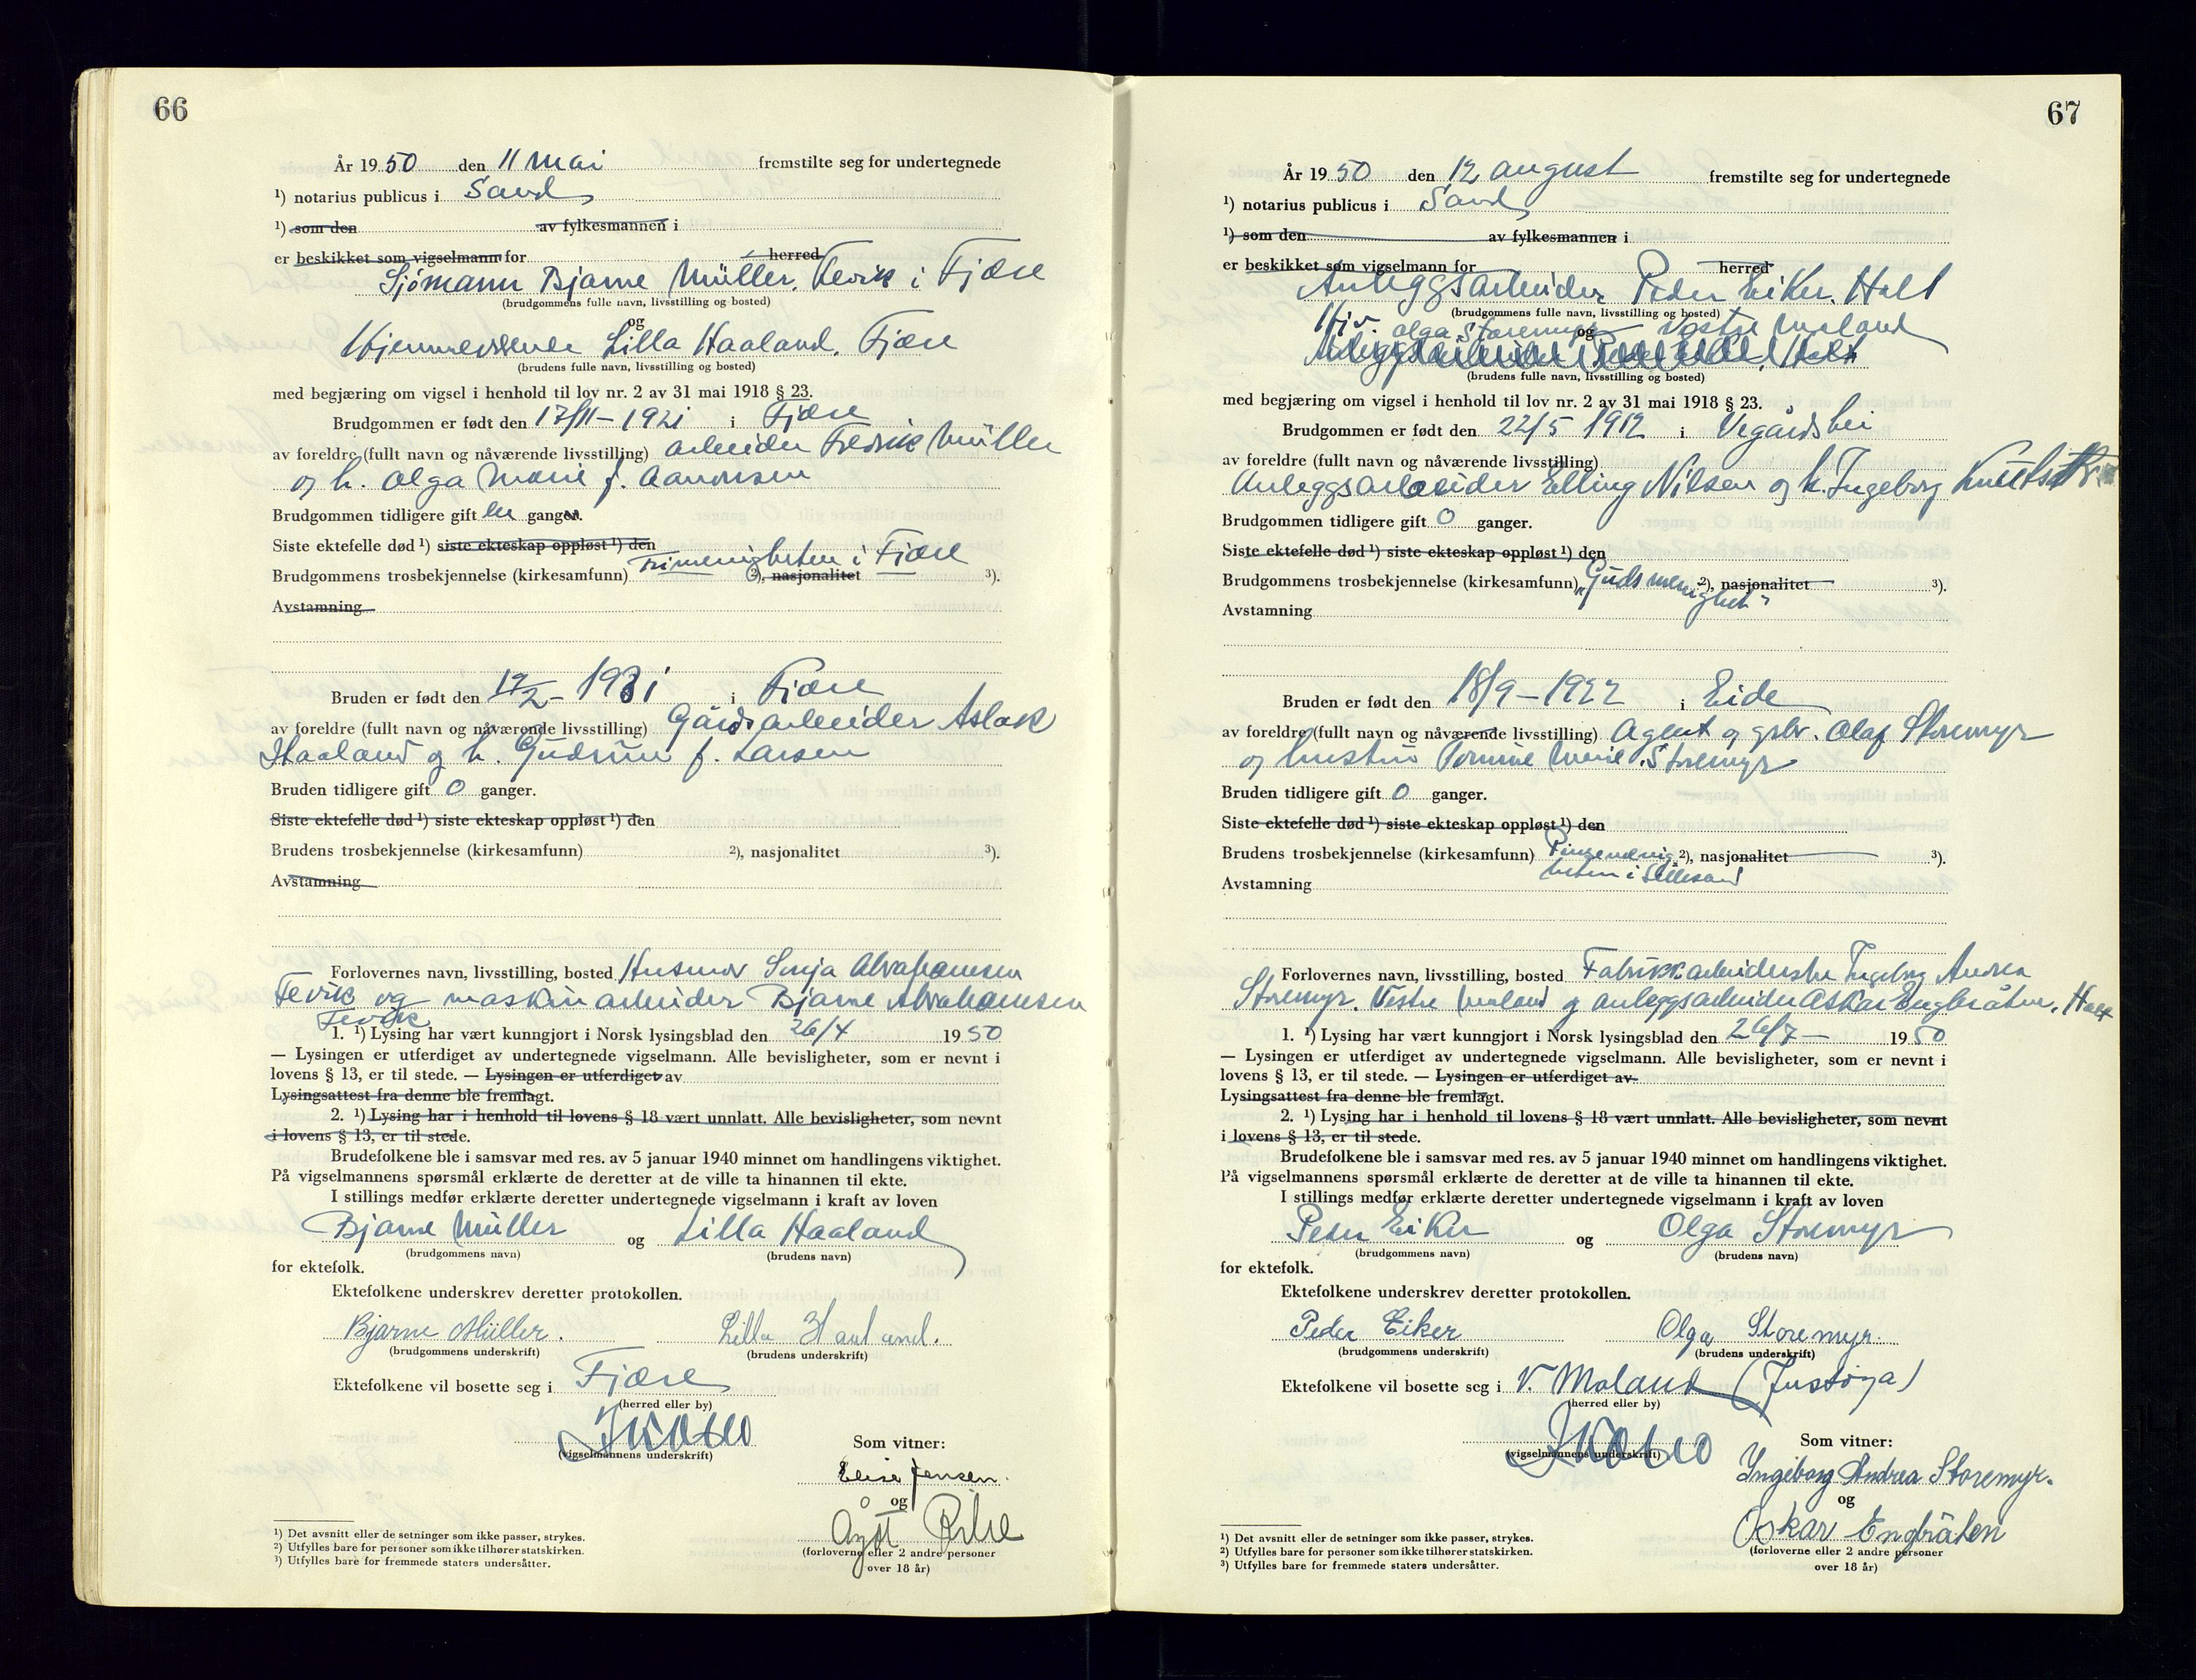 66
År 1950 den 11 mai fremstilte seg for undertegnede
¹) notarius publicus i Sand
¹) som den av fylkesmannen i
er beskikket som vigselmann for herred
Sjømann Bjarne Müller, Fevik i Fjære
(brudgommens fulle navn, livsstilling og bosted)
og
Hjemmeværende Lilla Haaland, Fjære
(brudens fulle navn, livsstilling og bosted)
med begjæring om vigsel i henhold til lov nr. 2 av 31 mai 1918 § 23.
Brudgommen er født den 17/11-1921 i Fjære
av foreldre (fullt navn og nåværende livsstilling) arbeider Fredrik Müller
og h. Olga Marie f. Aanonsen
Brudgommen tidligere gift en ganger.
Siste ektefelle død ¹) siste ekteskap oppløst ¹) den
Brudgommens trosbekjennelse (kirkesamfunn) Frimenigheten i Fjære ²), nasjonalitet ³).
Avstamning
Bruden er født den 19/2-1931 i Fjære
av foreldre (fullt navn og nåværende livsstilling) Gårdsarbeider Aslak
Haaland og h. Gudrun f. Larsen
Bruden tidligere gift 0 ganger.
Siste ektefelle død ¹) siste ekteskap oppløst ¹) den
Brudens trosbekjennelse (kirkesamfunn) ²), nasjonalitet ³).
Avstamning
Forlovernes navn, livsstilling, bosted Husmor Sonja Abrahamsen
Fevik og maskinarbeider Bjarne Abrahamsen
Fevik
1. ¹) Lysing har vært kunngjort i Norsk lysingsblad den 26/4 1950
— Lysingen er utferdiget av undertegnede vigselmann. Alle bevisligheter, som er nevnt i
lovens § 13, er til stede. — Lysingen er utferdiget av
Lysingsattest fra denne ble fremlagt.
2. ¹) Lysing har i henhold til lovens § 18 vært unnlatt. Alle bevisligheter, som nevnt
i lovens § 13, er til stede.
Brudefolkene ble i samsvar med res. av 5 januar 1940 minnet om handlingens viktighet.
På vigselmannens spørsmål erklærte de deretter at de ville ta hinannen til ekte.
I stillings medfør erklærte deretter undertegnede vigselmann i kraft av loven
Bjarne Müller og Lilla Haaland
(brudgommens navn) (brudens navn)
for ektefolk.
Ektefolkene underskrev deretter protokollen.
Bjarne Müller. Lilla Haaland.
(brudgommens underskrift) (brudens underskrift)
Ektefolkene vil bosette seg i Fjære
(herred eller by)
(vigselmannens underskrift)
Som vitner:
Elise Jensen.
og
Ågot
(forloverne eller 2 andre personer
over 18 år)
¹) Det avsnitt eller de setninger som ikke passer, strykes.
²) Utfylles bare for personer som ikke tilhører statskirken.
³) Utfylles bare for fremmede staters undersåtter.
67
År 1950 den 12 august fremstilte seg for undertegnede
¹) notarius publicus i Sand
¹) som den av fylkesmannen i
er beskikket som vigselmann for herred
Anleggsarbeider Peder Eiker, Holt
(brudgommens fulle navn, livsstilling og bosted)
Hjv. Olga Storemyr og Vestre Moland
(brudens fulle navn, livsstilling og bosted)
med begjæring om vigsel i henhold til lov nr. 2 av 31 mai 1918 § 23.
Brudgommen er født den 22/5 1912 i Vegårdshei
av foreldre (fullt navn og nåværende livsstilling)
Anleggsarbeider Elling Nilsen og h. Ingeborg
Brudgommen tidligere gift 0 ganger.
Siste ektefelle død ¹) siste ekteskap oppløst ¹) den
Brudgommens trosbekjennelse (kirkesamfunn) "Guds menighet" ²), nasjonalitet ³).
Avstamning
Bruden er født den 18/9-1922 i Eide
av foreldre (fullt navn og nåværende livsstilling) Agent og grbr. Olaf Storemyr
og hustru Tomine Marie Storemyr
Bruden tidligere gift 0 ganger.
Siste ektefelle død ¹) siste ekteskap oppløst ¹) den
Brudens trosbekjennelse (kirkesamfunn) Pinsemenig ²), nasjonalitet ³).
heten i Lillesand
Avstamning
Forlovernes navn, livsstilling, bosted Fabrikkarbeiderske Ingeborg Andrea
Storemyr, Vestre Moland og anleggsarbeider Oskar Engbråten, Holt
1. ¹) Lysing har vært kunngjort i Norsk lysingsblad den 26/7- 1950
— Lysingen er utferdiget av undertegnede vigselmann. Alle bevisligheter, som er nevnt i
lovens § 13, er til stede. — Lysingen er utferdiget av
Lysingsattest fra denne ble fremlagt.
2. ¹) Lysing har i henhold til lovens § 18 vært unnlatt. Alle bevisligheter, som nevnt
i lovens § 13, er til stede.
Brudefolkene ble i samsvar med res. av 5 januar 1940 minnet om handlingens viktighet.
På vigselmannens spørsmål erklærte de deretter at de ville ta hinannen til ekte.
I stillings medfør erklærte deretter undertegnede vigselmann i kraft av loven
Peder Eiker og Olga Storemyr
(brudgommens navn) (brudens navn)
for ektefolk.
Ektefolkene underskrev deretter protokollen.
Peder Eiker Olga Storemyr.
(brudgommens underskrift) (brudens underskrift)
Ektefolkene vil bosette seg i V. Moland (Justøya)
(herred eller by)
(vigselmannens underskrift)
Som vitner:
Ingeborg Andrea Storemyr.
og
Oskar Engbråten
(forloverne eller 2 andre personer
over 18 år)
¹) Det avsnitt eller de setninger som ikke passer, strykes.
²) Utfylles bare for personer som ikke tilhører statskirken.
³) Utfylles bare for fremmede staters undersåtter.